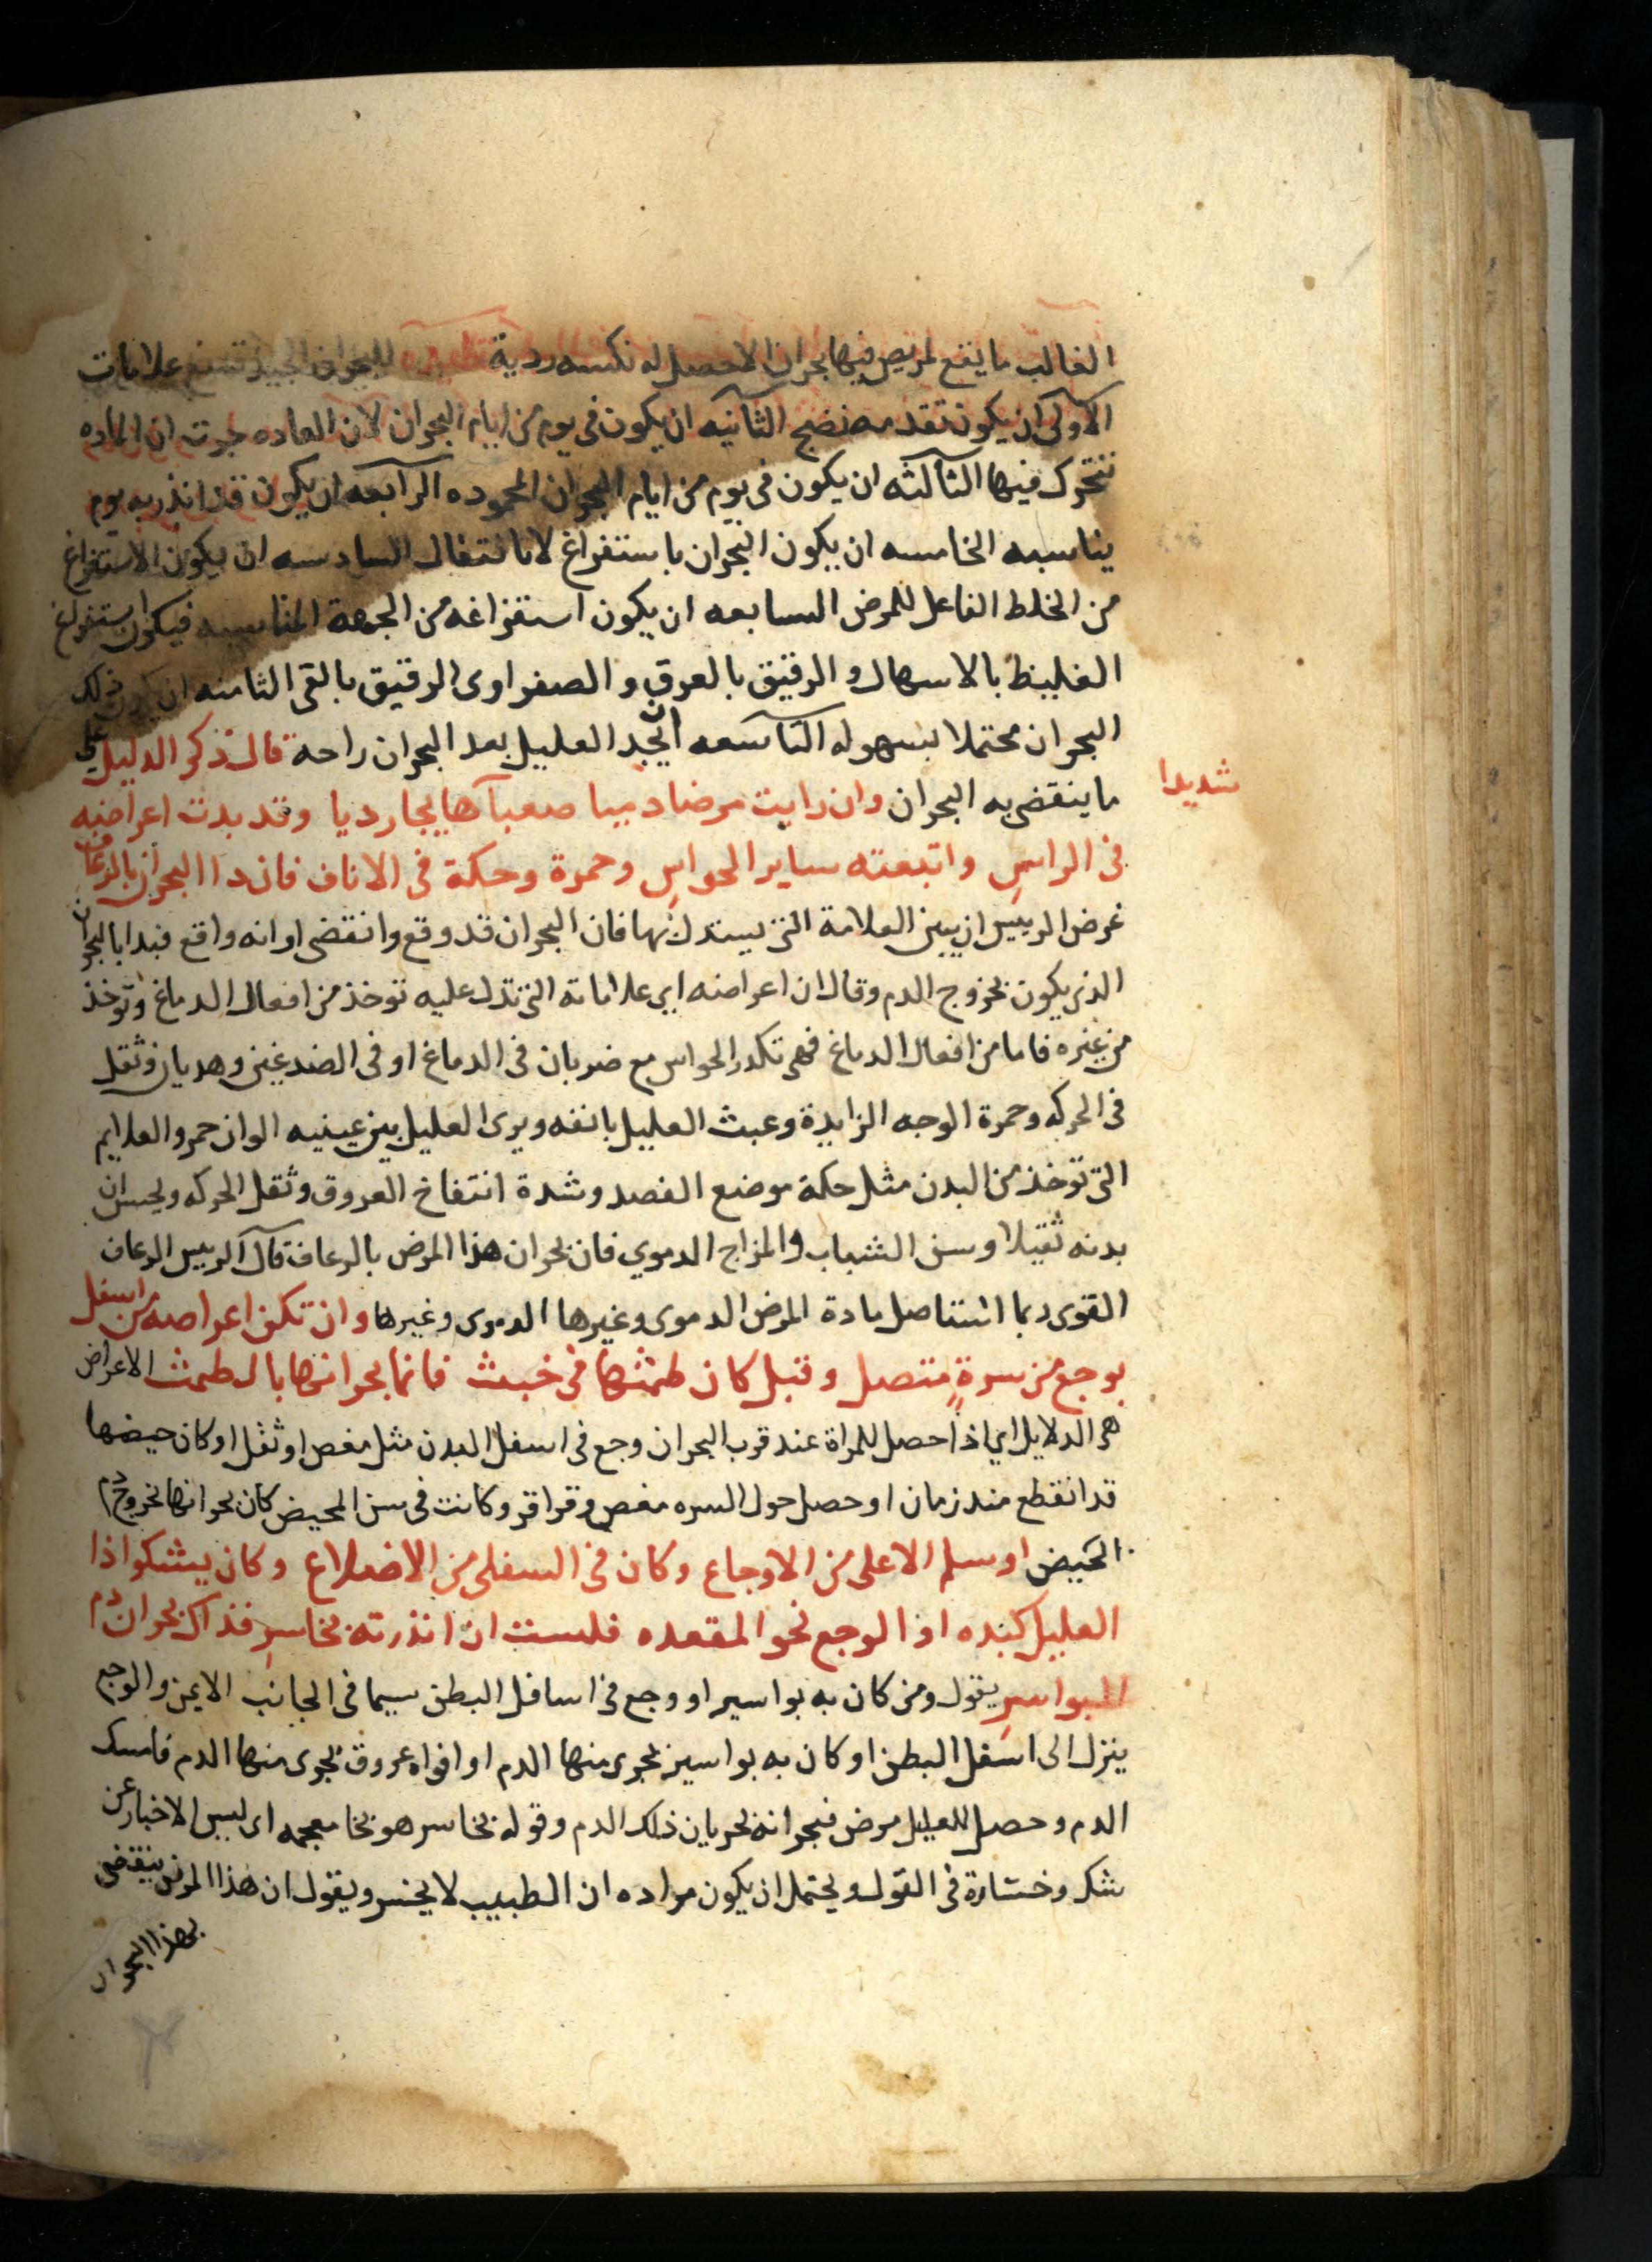 الغالب ما يقع لمريض فيها بحران الا حصل له نكسه ردية للبحران الجيد تسع علامات
الاولى ان يكون تقدمه نضج الثانيه ان يكون فى يوم من ايام البحران لان العاده جرت ان الماده
تتحرك فيها الثالثه ان يكون فى يوم من ايام البحران المحموده الرابعه ان يكون قد انذر به يوم
يناسبه الخامسه ان يكون البحران باستفراغ لا بانتقال السادسه ان يكون الاستفراغ
من الخلط الفاعل للمرض السابعه ان يكون استفراغه من الجهة المناسبه فيكون استفراغ
الغليظ بالاسهال والرقيق بالعرق والصفراوى الرقيق بالقى الثامنه ان يكون ذلك
البحران محتملا بسهوله التاسعه ان يجد العليل بعد البحران راحة قال ذكر الدليل على
ما ينقضى به البحران وان رايت مرضا دميا صعبا هايجا رديا وقد بدت اعراضه
شديدا
فى الراس واتبعته ساير الحواس وحمرة وحكة فى الاناف فان ذا البحران بالرعاف
غرض الرييس ان يبين العلامة التى يستدل بها فان البحران قد وقع وانقضى او انه واقع فبدا بالبحران
الذى يكون بخروج الدم وقال ان اعراضه اى علاماته التى تدل عليه توخذ من افعال الدماغ وتوخذ
من غيره فاما من افعال الدماغ فهى تكدر الحواس مع ضربان فى الدماغ او فى الصدغين وهديان وثقل
فى الحركه وحمرة الوجه الزايدة وعبث العليل بانفه ويرى العليل بين عينيه الوان حمر والعلايم
التى توخذ من البدن مثل حكة موضع الفصد وشدة انتفاخ العروق وثقل الحركه ويحس ان
بدنه ثقيلا وسن الشباب والمزاج الدموي فان بحران هذا المرض بالرعاف قال الرييس الرعاف
القوى ربما استاصل مادة المرض الدموى وغيرها الدموى وغيرها وان تكن اعراضه من اسفل
بوجع من سرةٍ متصل وقبل كان طمثها فى خبث فانما بحرانها بالطمث الاعراض
هى الدلايل اي اذا حصل للمراة عند قرب البحران وجع فى اسفل البدن مثل مغص او ثقل او كان حيضها
قد انقطع منذ زمان او حصل حول السره مغص وقراقر وكانت فى سن المحيض كان بحرانها بخروج دم
الحيض او سلم الاعلى من الاوجاع وكان فى السفلى من الاضلاع وكان يشكوا اذا
العليل كبده او الوجع نحو المقعده فلست ان انذرته بخاسر فذاك بحران دم
البواسر يقول ومن كان به بواسير او وجع فى اسافل البطن سيما فى الجانب الايمن والوجع
ينزل الى اسفل البطن او كان به بواسير يجرى منها الدم او افواه عروق يجرى منها الدم فامسك
الدم وحصل للعليل مرض فبحرانه بجريان ذلك الدم وقوله بخاسر هو بخا معجمه اى ليس الاخبار عن
شك وخسارة فى القول ويحتمل ان يكون مراده ان الطبيب لا يخسر ويقول ان هذا المرض ينقضى
بهذا البحران